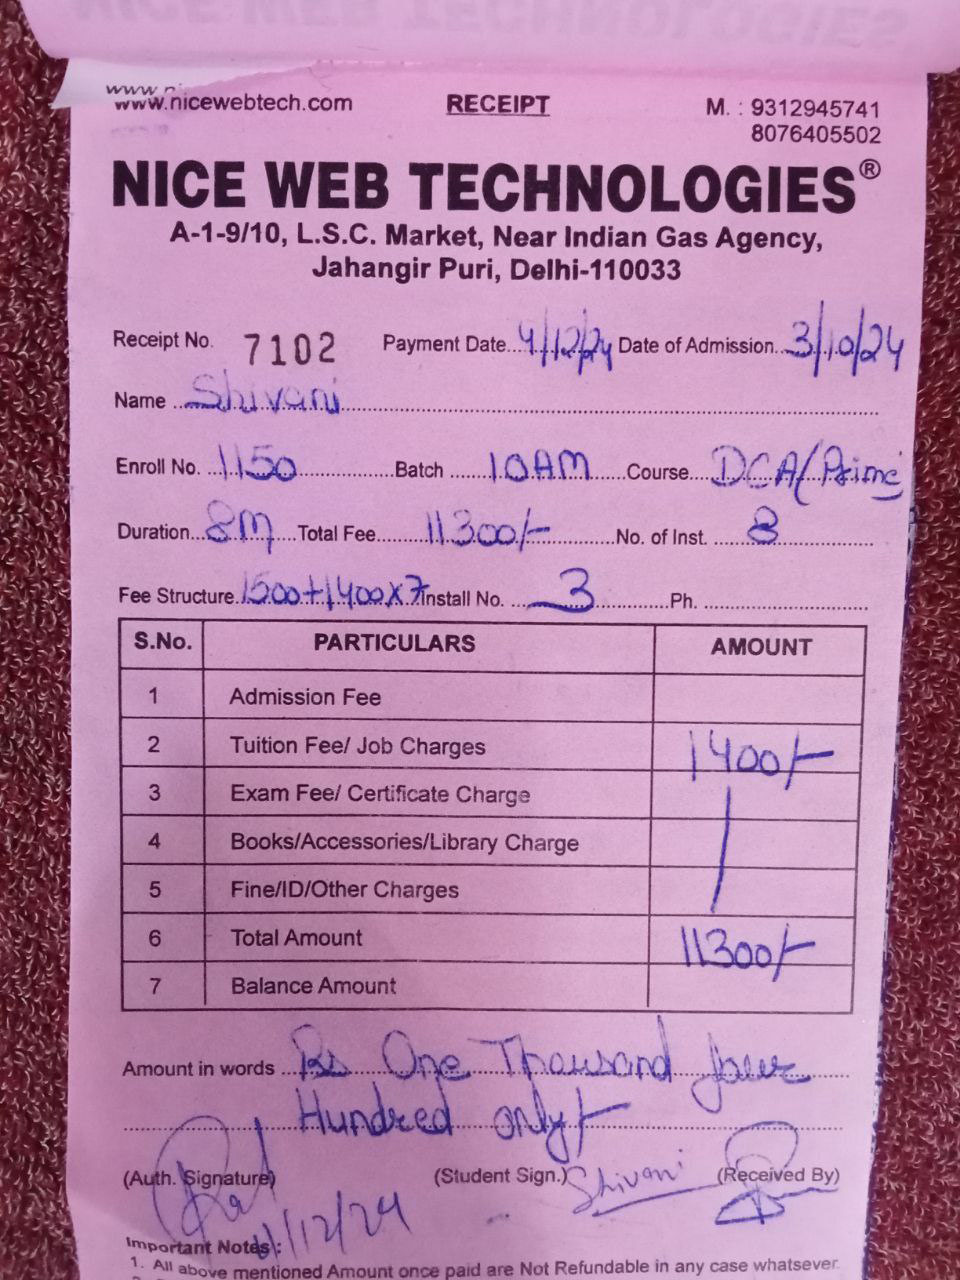 www.nicewebtech.com RECEIPT M. : 9312945741
8076405502
NICE WEB TECHNOLOGIES®
A-1-9/10, L.S.C. Market, Near Indian Gas Agency,
Jahangir Puri, Delhi-110033
Receipt No. 7102 Payment Date 4/12/24 Date of Admission 3/10/24
Name Shivani
Enroll No. 1150 Batch 10AM Course DCA/Prime
Duration 8M Total Fee 11300/- No. of Inst. 8
Fee Structure 1500+1400x7 Install No. 3 Ph.
S.No. PARTICULARS AMOUNT
1 Admission Fee
2 Tuition Fee/ Job Charges 1400/-
3 Exam Fee/ Certificate Charge
4 Books/Accessories/Library Charge
5 Fine/ID/Other Charges
6 Total Amount 11300/-
7 Balance Amount
Amount in words Rs One Thousand four
Hundred only/-
(Auth. Signature) (Student Sign.) Shivani (Received By)
4/12/24
Important Notes :
1. All above mentioned Amount once paid are Not Refundable in any case whatsever.